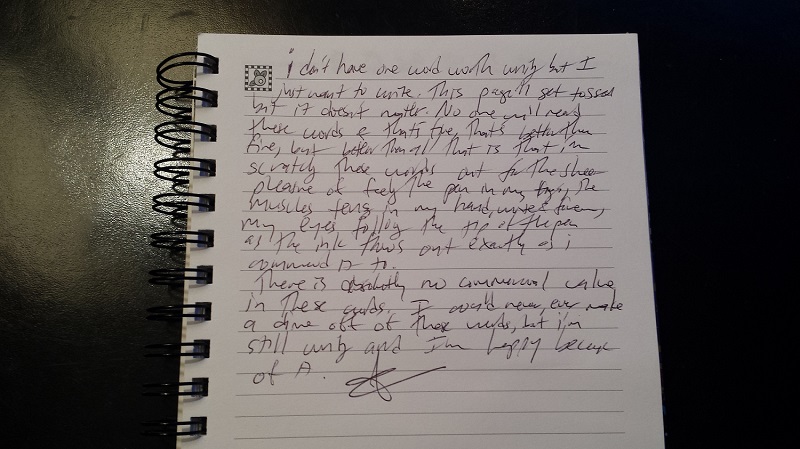 i don't have one word worth writing but I
just want to write. This page'll get tossed
but it doesn't matter. No one will read
these words & that's fine, that's better than
fine, but better than all that is that i'm
scratching these words out for the sheer
pleasure of feeling the pen in my fingers, the
muscles tensing in my hand,
my eyes following the tip of the pen
as the ink flows out exactly as i
command it to.
There is absolutely no commercial value
in these words. I could never, ever make
a dime off of these words, but i'm
still writing and I'm happy because
of it.